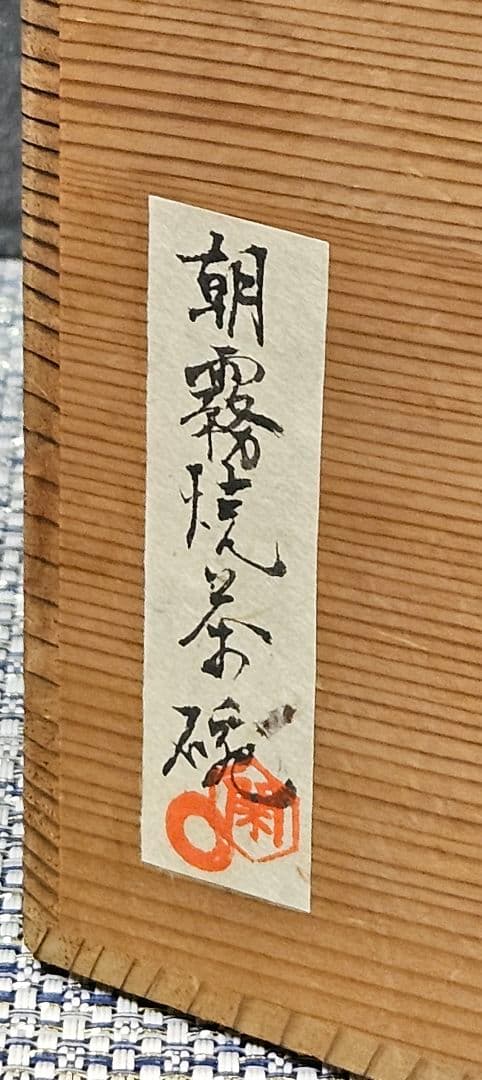 朝霧焼茶碗
蘭